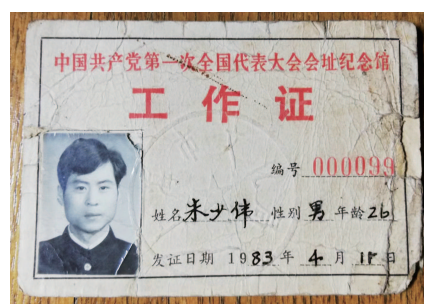 中国共产党第一次全国代表大会会址纪念馆
工作证
编号 000099
姓名 朱少伟 性别 男 年龄 26
发证日期 1983年 4月 18日